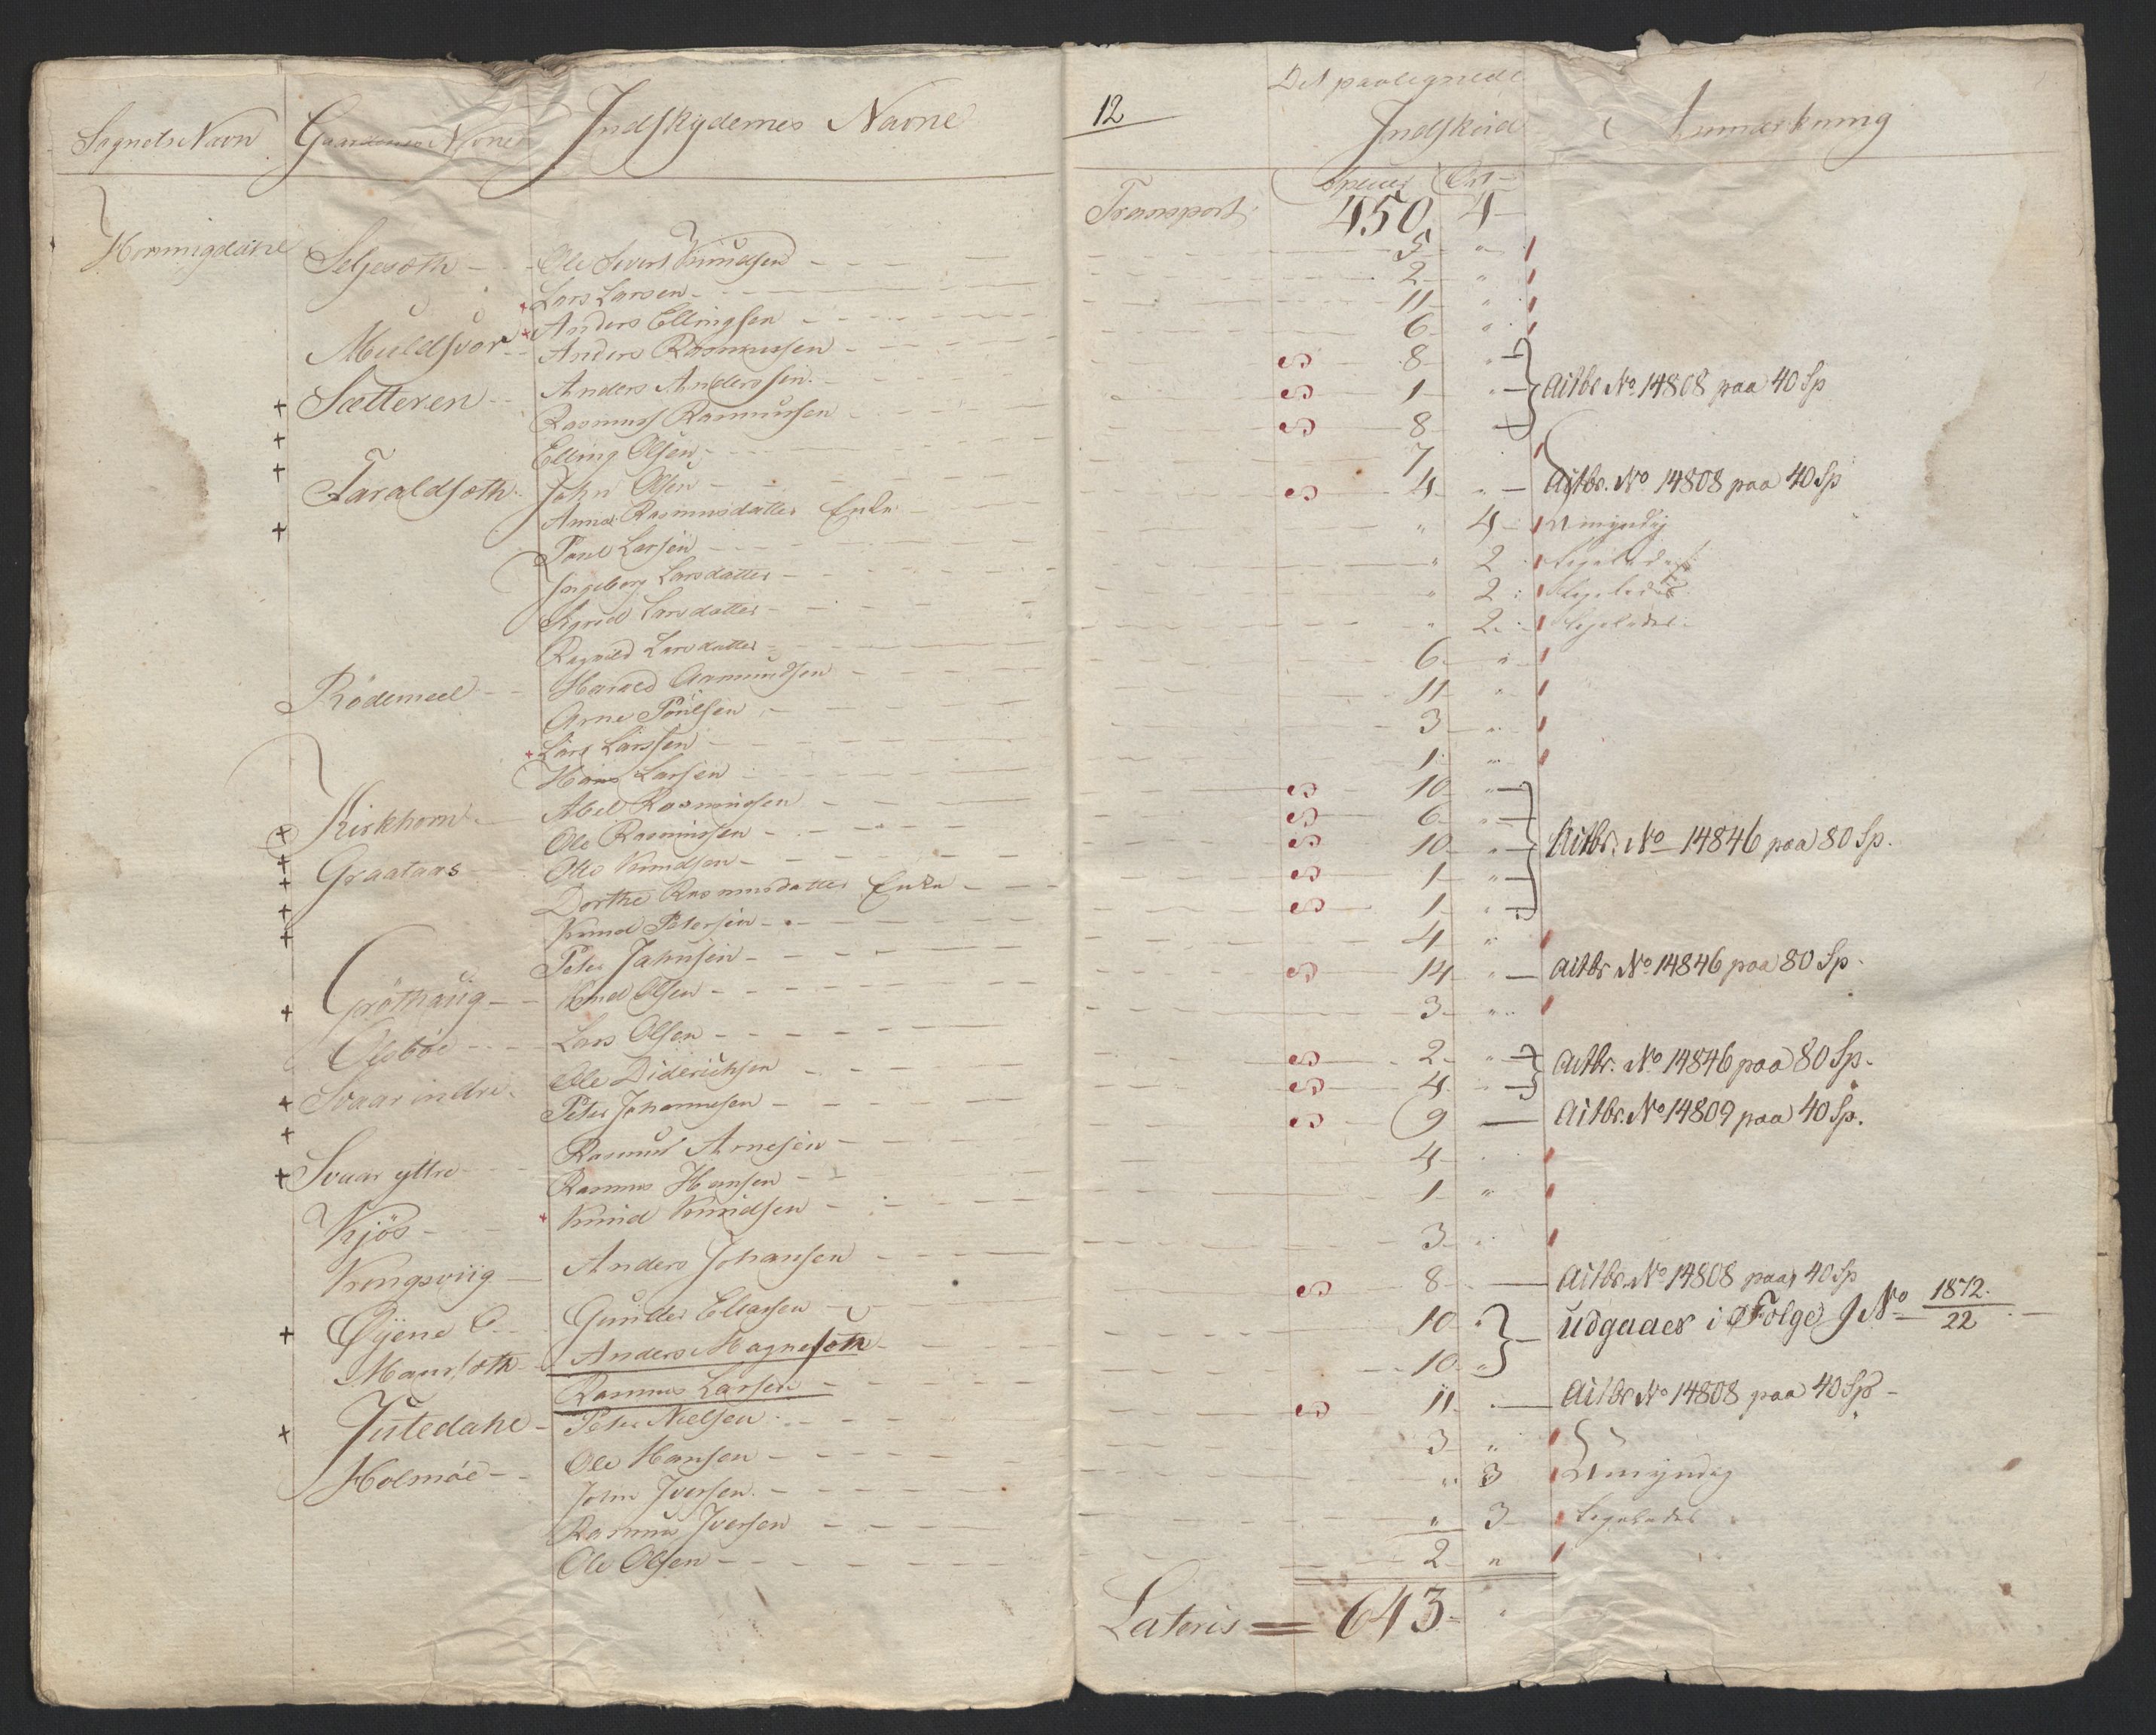 Sognets Navn Gaardenes Navne Indskydernes Navne
12 Det paalignede Indskud Anmærkning
Species Ort
Transport 450 4
Hornnigdahl Seljesæth Ole Sivert Knudsen 5 "
Lars Larsen 2 "
Anders Ellingsen 11 "
Muldsvor Anders Rasmussen 6 "
Sætteren Anders Anderssen 8 "
Rasmus Rasmussen 1 " Aitbr No 14808 paa 40 Sp
Elling Olsen 8
Taraldsæth John Olsen 7
Anna Rasmusdatter Enke 4 " Aitbr. No 14808 paa 40 Sp
Poul Larsen " 4 Umyndig
Ingeborg Larsdatter " 2 Ligeledes
Sigrid Larsdatter " 2 Ligeledes
Ragnild Larsdatter " 2 Ligeledes
Rödemeel Harald Aamundsen 6 "
Arne Poulsen 11 "
Lars Larssen 3 "
Hans Larsen 1 "
Kirkhorn Abel Rasmussen 10 "
Graataas Ole Rasmussen 6 "
Otto Knudsen 10 " Aitbr. No 14846 paa 80 Sp.
Dorthe Rasmusdatter Enke 1 "
Knud Petersen 1 "
Peter Jahnsen 4 "
Gröthaug Knud Olsen 14 " Aitbr No 14846 paa 80 Sp.
Otterböe Lars Olsen 3 "
Svaar indre Ole Diderichsen 2 " Aitbr. No 14846 paa 80 Sp.
Peter Johannesen 4 "
Rasmus Arnesen 9 Aitbr. No 14809 paa 40 Sp.
Svaar yttre Rasmus Hansen 4
Knud Knudsen 1 "
Kjös
Kongsviig Anders Johansen 3
Øyene Gunder Eliassen 8 Aitbr. No 14808 paa 40 Sp
Maursæth Anders Magnesæth 10 Udgaaer i Følge J No 1872. 22
Rasmus Larsen 10 "
Jutedahl Peter Nielsen 11 Aitbr No 14808 paa 40 Sp
Holmöe Ole Hansen 3 "
John Iversen " 3 Umyndig
Rasmus Iversen " 3 Ligeledes
Ole Olsen 2 "
Lateris = 643 "